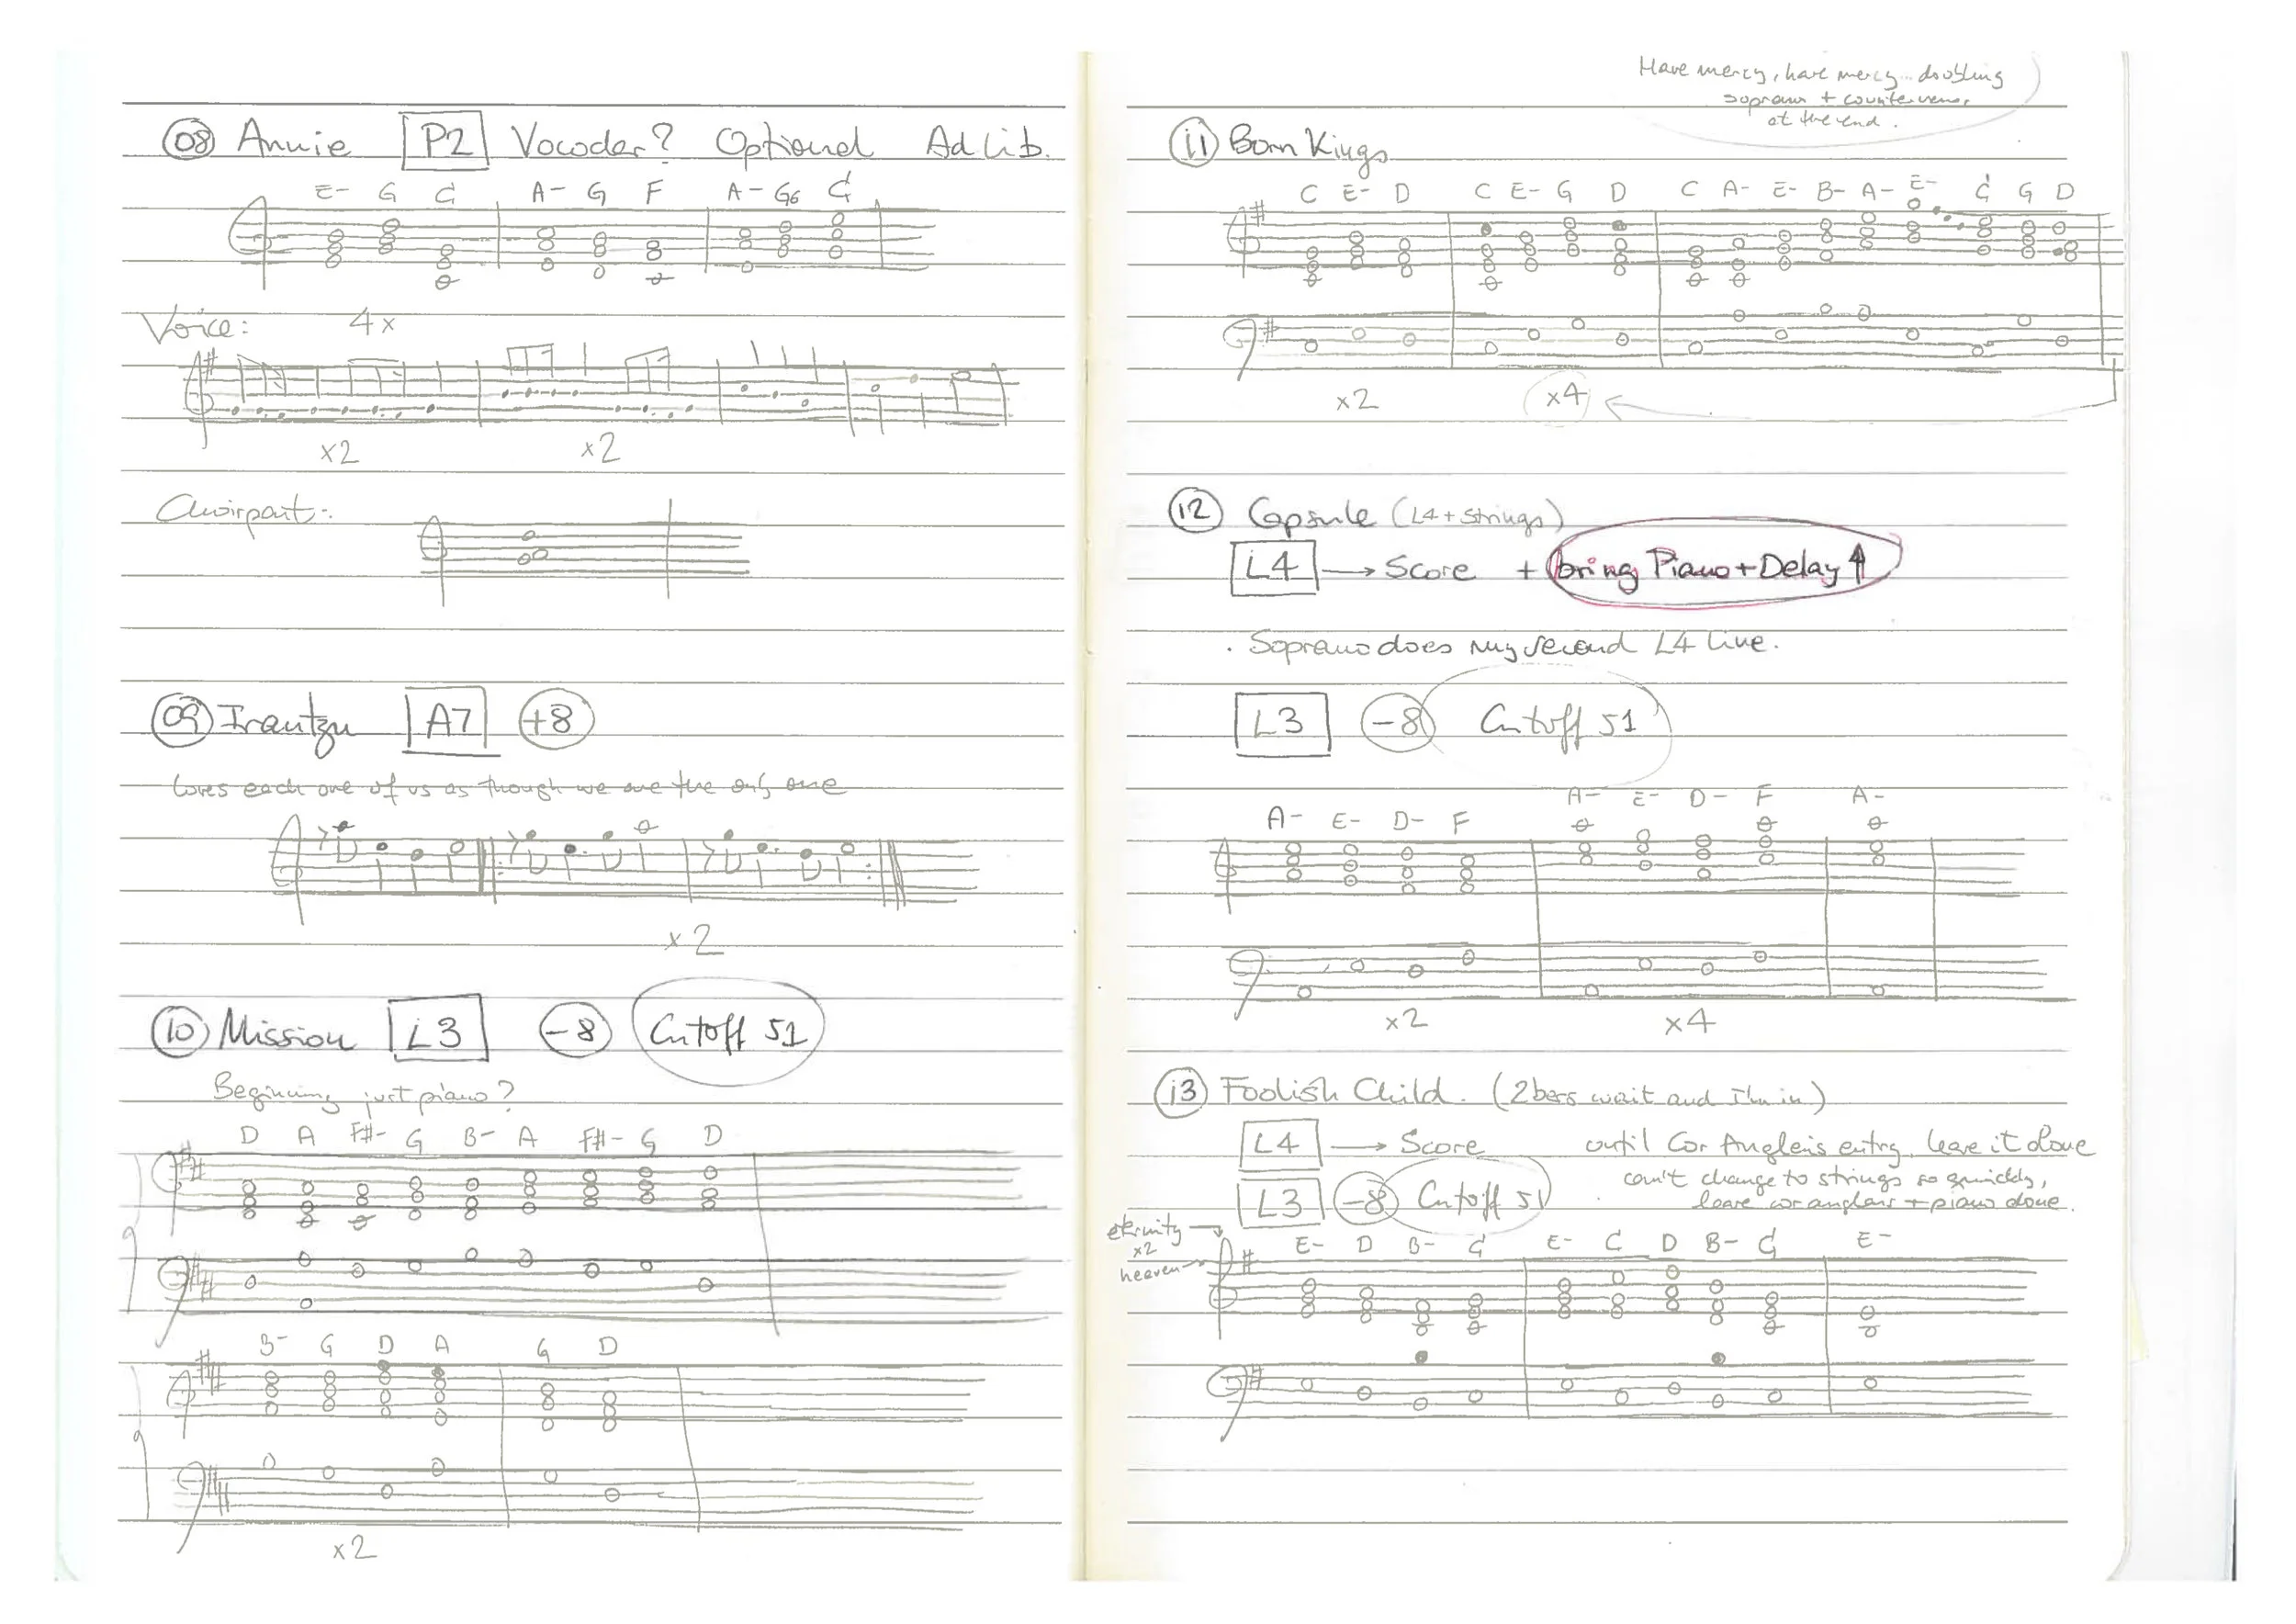 08 Annie P2 Vocoder? Optional Ad Lib.
E- G C A- G F A- G6 C
Voice: 4x
x2 x2
Choirpart:
09 Irantzu A7 +8
loves each one of us as though we are the only one
x2
10 Mission L3 -8 Cutoff 51
Beginning just piano?
D A F#- G B- A F#- G D
B- G D A G D
x2
Have mercy, have mercy... doubling
soprano + countertenor
at the end.
11 Born Kings
C E- D C E- G D C A- E- B- A- E- C G D
x2 x4
12 Capsule (L4 + Strings)
L4 → Score + bring Piano + Delay ↑
. Soprano does my second L4 live.
L3 -8 Cutoff 51
A- E- D- F A- E- D- F A-
x2 x4
13 Foolish Child. (2 bars wait and I'm in)
L4 → Score until Cor Anglais entry, leave it alone
can't change to strings so quickly,
L3 -8 Cutoff 51 leave cor anglais + piano alone.
eternity →
x2
heaven →
E- D B- C E- C D B- C E-